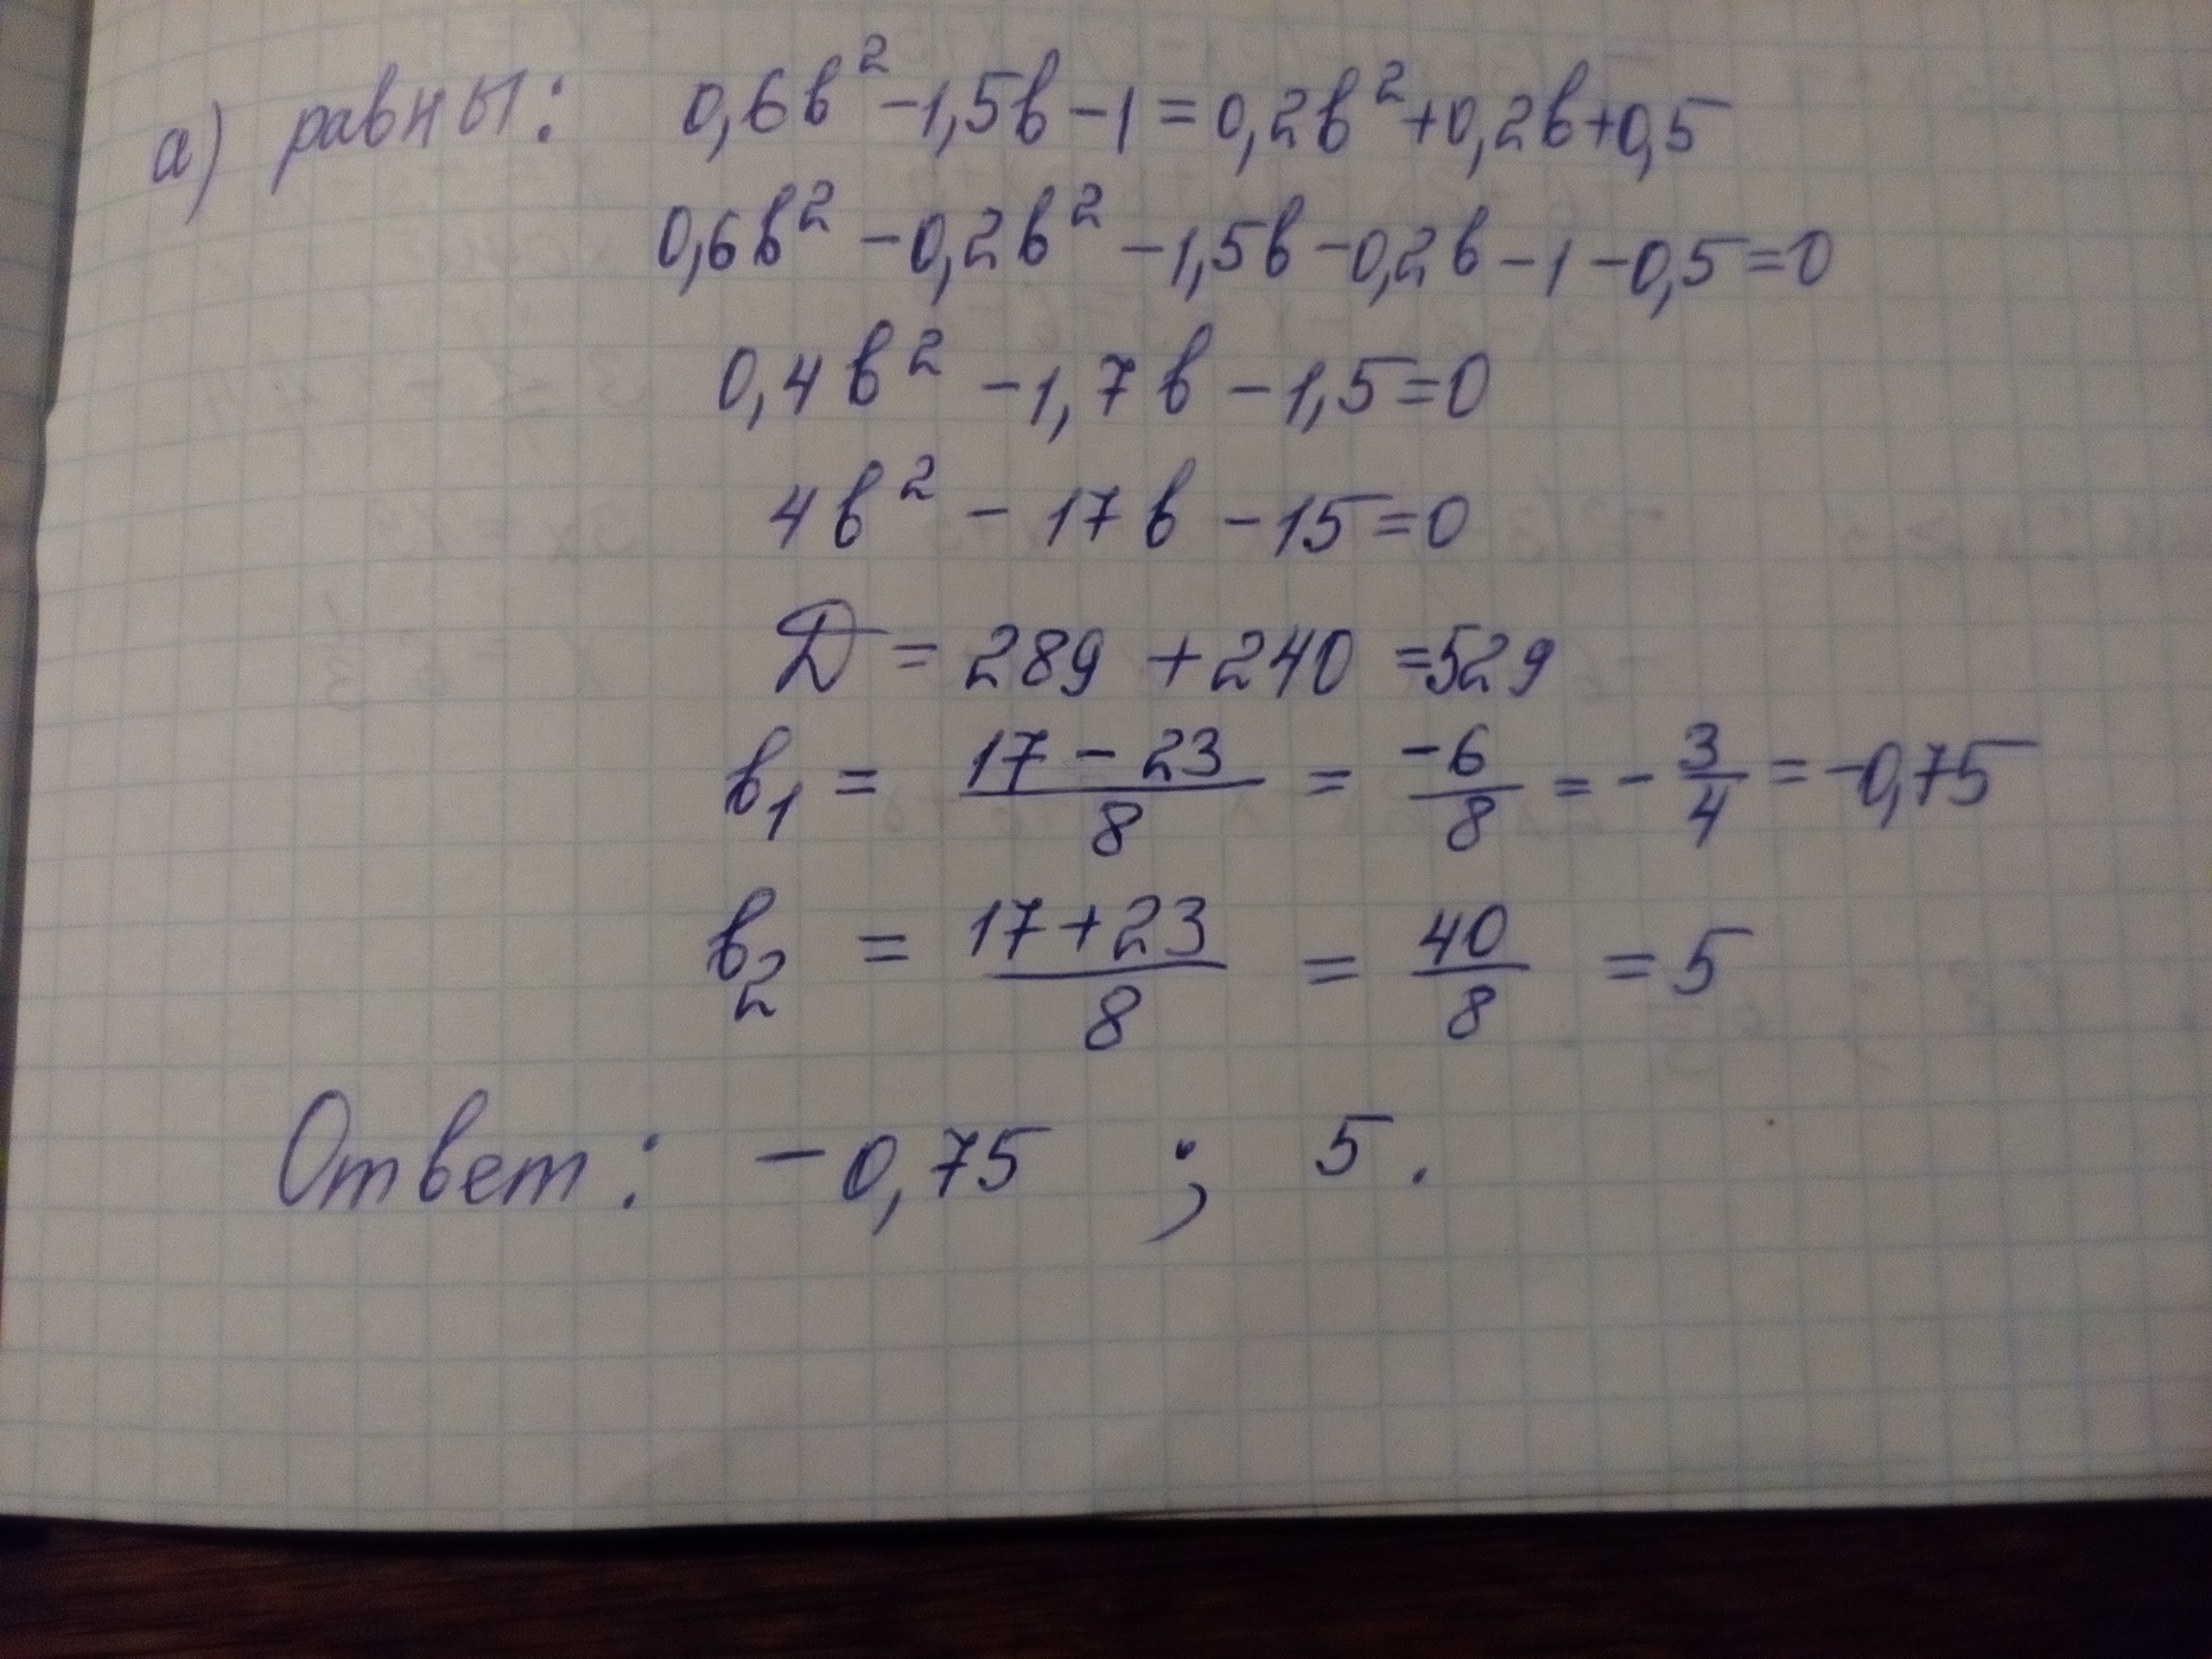 а) равны: 0,6b² -1,5b -1 = 0,2b² +0,2b+0,5
0,6b² - 0,2b² - 1,5b - 0,2b - 1 - 0,5 = 0
0,4b² - 1,7b - 1,5 = 0
4b² - 17b - 15 = 0
Д = 289 + 240 = 529
b₁ = (17 - 23)/8 = -6/8 = - 3/4 = -0,75
b₂ = (17 + 23)/8 = 40/8 = 5
Ответ: - 0,75 ; 5.